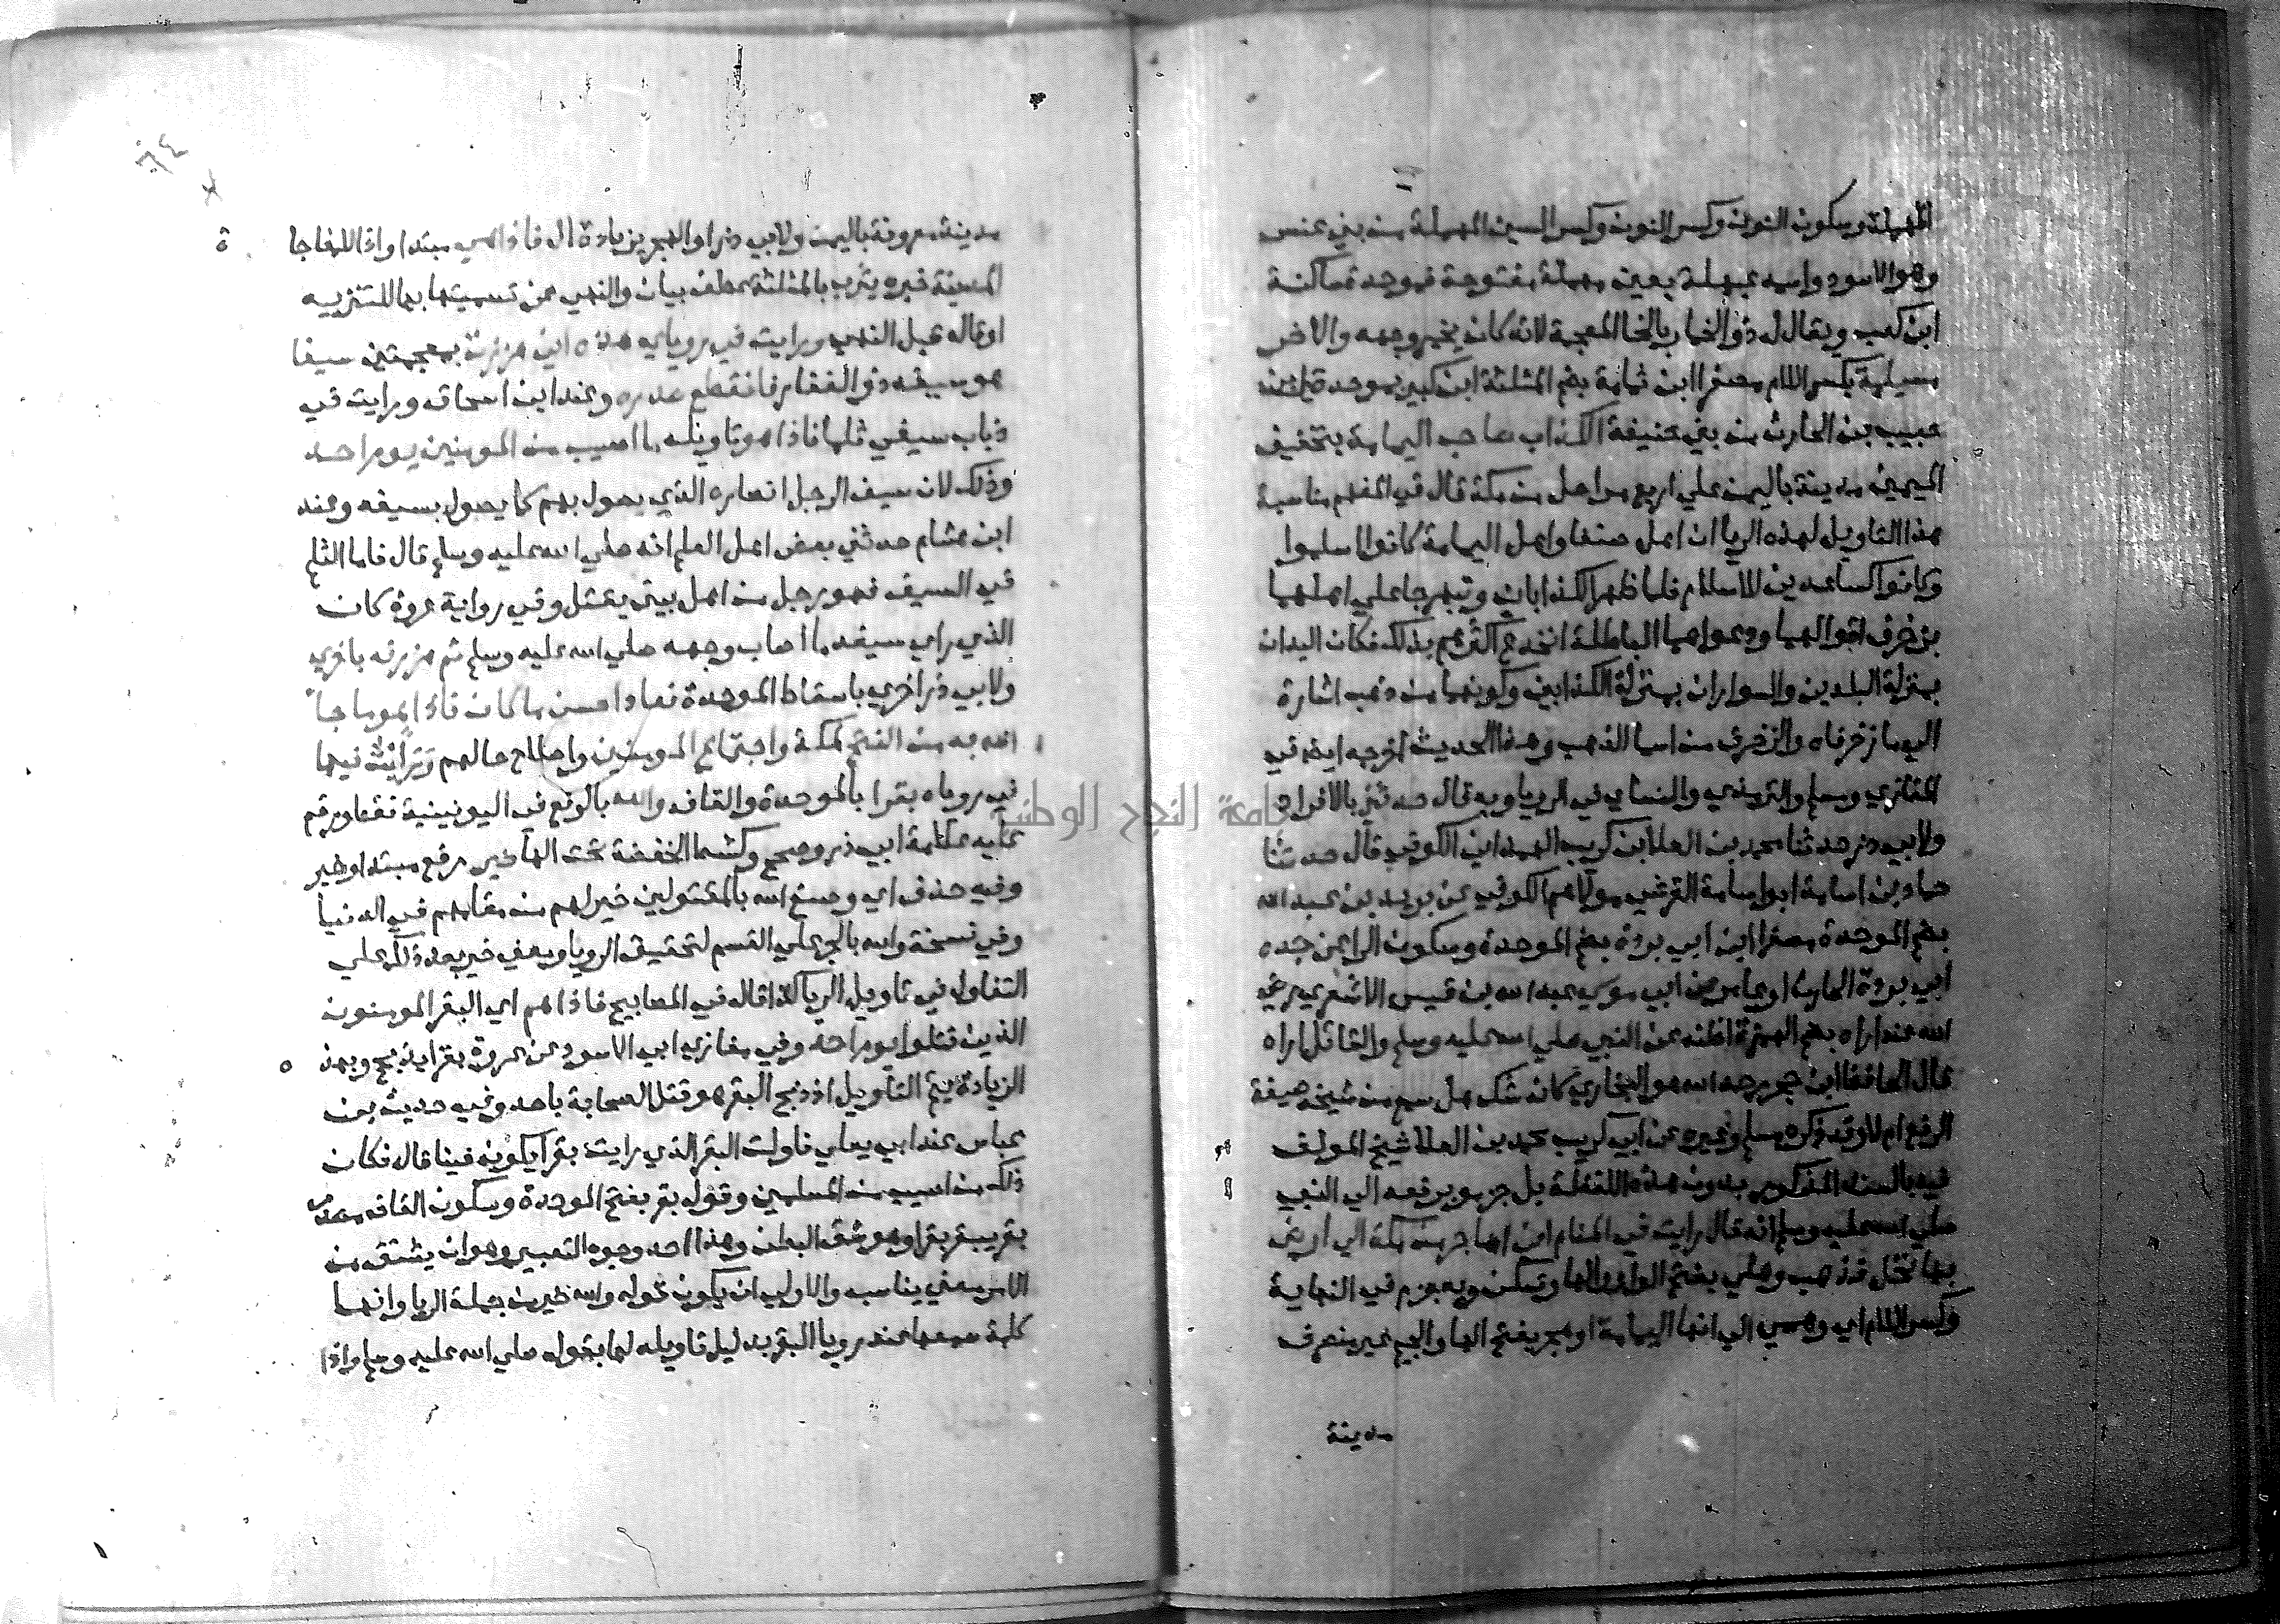 المهملة وسكون النون وكسر النون وكسر السين المهملة من بني عنس
وهو الاسود واسمه عبهلة بعين مهملة مفتوحة فموحدة ساكنة
ابن كعب ويقال له ذو الخمار بالخا المعجمة لانه كان يخمر وجهه والاخر
مسيلمة بكسر اللام مصغرا ابن ثمامة بضم المثلثة ابن كبير بموحدة ابن
حبيب بن الحارث من بني حنيفة الكذاب صاحب اليمامة بتخفيف
الميمين مدينة باليمن علي اربع مراحل من مكة قال في المفهم مناسبة
هذا التاويل لهذه الريا ان اهل صنعا واهل اليمامة كانوا اسلموا
وكانوا كساعدين للاسلام فلما ظهر الكذابان وتبهرجا علي اهلهما
بزخرف اقوالهما ودعواهما الباطلة انخدع اكثرهم بذلك فكان اليدان
بمنزلة البلدين والسواران بمنزلة الكذابين وكونهما من ذهب اشارة
الي ما زخرفاه والزخرف من اسما الذهب وهذا الحديث اخرجه ايضا في
المغازي ومسلم والترمذي والنساي في الريا وبه قال حدثني بالافراد
ولابي ذر حدثنا محمد بن العلا بن كريب الهمداني الكوفي قال حدثنا
حماد بن اسامة ابو اسامة القرشي مولاهم الكوفي عن بريد بن عبد الله
بضم الموحدة مصغرا ابن ابي بردة بضم الموحدة وسكون الرا عن جده
ابي بردة الحارث او عامر عن ابي موسي عبد الله بن قيس الاشعري رضي
الله عنه اراه بضم الهمزة اظنه عن النبي صلي الله عليه وسلم والقائل اراه
قال الحافظ ابن حجر رحمه الله هو البخاري كانه شك هل سمع من شيخه صيغة
الرفع ام لا وقد ذكره مسلم وغيره عن ابي كريب محمد بن العلا شيخ المولف
فيه بالسند المذكور بدون هذه اللفظة بل جزموا برفعه الي النبي
صلي الله عليه وسلم انه قال رايت في المنام اني اهاجر من مكة الي ارض
بها نخل فذهب وهلي بفتح الواو والها وتسكن وبه جزم في النهاية
وكسر اللام اي وهمي الي انها اليمامة او هجر بفتح الها والجيم غير منصرف
مدينة
مدينة معروفة باليمن ولابي ذر او الهجر بزيادة ال فاذا هي مبتدا واذا للمفاجا
ة
المدينة خبره يثرب بالمثلثة عطف بيان والنهي عن تسميتها بها للتنزيه
او قاله قبل النهي ورايت في روياي هذه اني هززت بمعجمتين سيفا
هو سيفه ذو الفقار فانقطع صدره وعند ابن اسحاق ورايت في
ذباب سيفي ثلما فاذا هو تاويله ما اصيب من المومنين يوم احد
وذلك لان سيف الرجل انصاره الذي يصول بهم كما يصول بسيفه وعند
ابن هشام حدثني بعض اهل العلم انه صلي الله عليه وسلم قال فاما الثلم
في السيف فهو رجل من اهل بيتي يقتل وفي رواية عروة كان
الذي راي سيفه ما اصاب وجهه صلي الله عليه وسلم ثم هززته باخري
ولابي ذر اخري باسقاط الموحدة فعاد احسن ما كان فاذا هو ما جا
الله به من الفتح لمكة واجتماع المومنين واصلاح حالهم ورايت فيها
في روياه بقرا بالموحدة والقاف والله بالرفع في اليونينية فقط ورقم
عليه علامة ابي ذر وصحح وكشط الخفضة تحت الها خير رفع مبتدا وخبر
وفيه حذف اي وصنع الله بالمقتولين خير لهم من مقامهم في الدنيا
وفي نسخة والله بالجر علي القسم لتحقيق الرويا ومعني خير بعد ذلك علي
التفاول في تاويل الريا كذا قاله في المصابيح فاذا هم اي البقر المومنون
الذين قتلوا يوم احد وفي مغازي ابي الاسود عن عروة بقرا يذبح وبهذ
ه
الزيادة يتم التاويل اذ ذبح البقر هو قتل الصحابة باحد وفي حديث بن
عباس عند ابي يعلي فاولت البقر الذي رايت بقرا يكون فينا قال فكان
ذلك من اصيب من المسلمين وقوله بقر بفتح الموحدة وسكون القاف مصدر
بقر يبقر بقرا وهو شق البطن وهذا احد وجوه التعبير وهو ان يشتق من
الاسم معني يناسبه والاولي ان يكون قوله والله خير من جملة الريا وانها
كلمة سمعها عند رويا البقر بدليل تاويله لها بقوله صلي الله عليه وسلم واذا
جامعة النجاح الوطنية